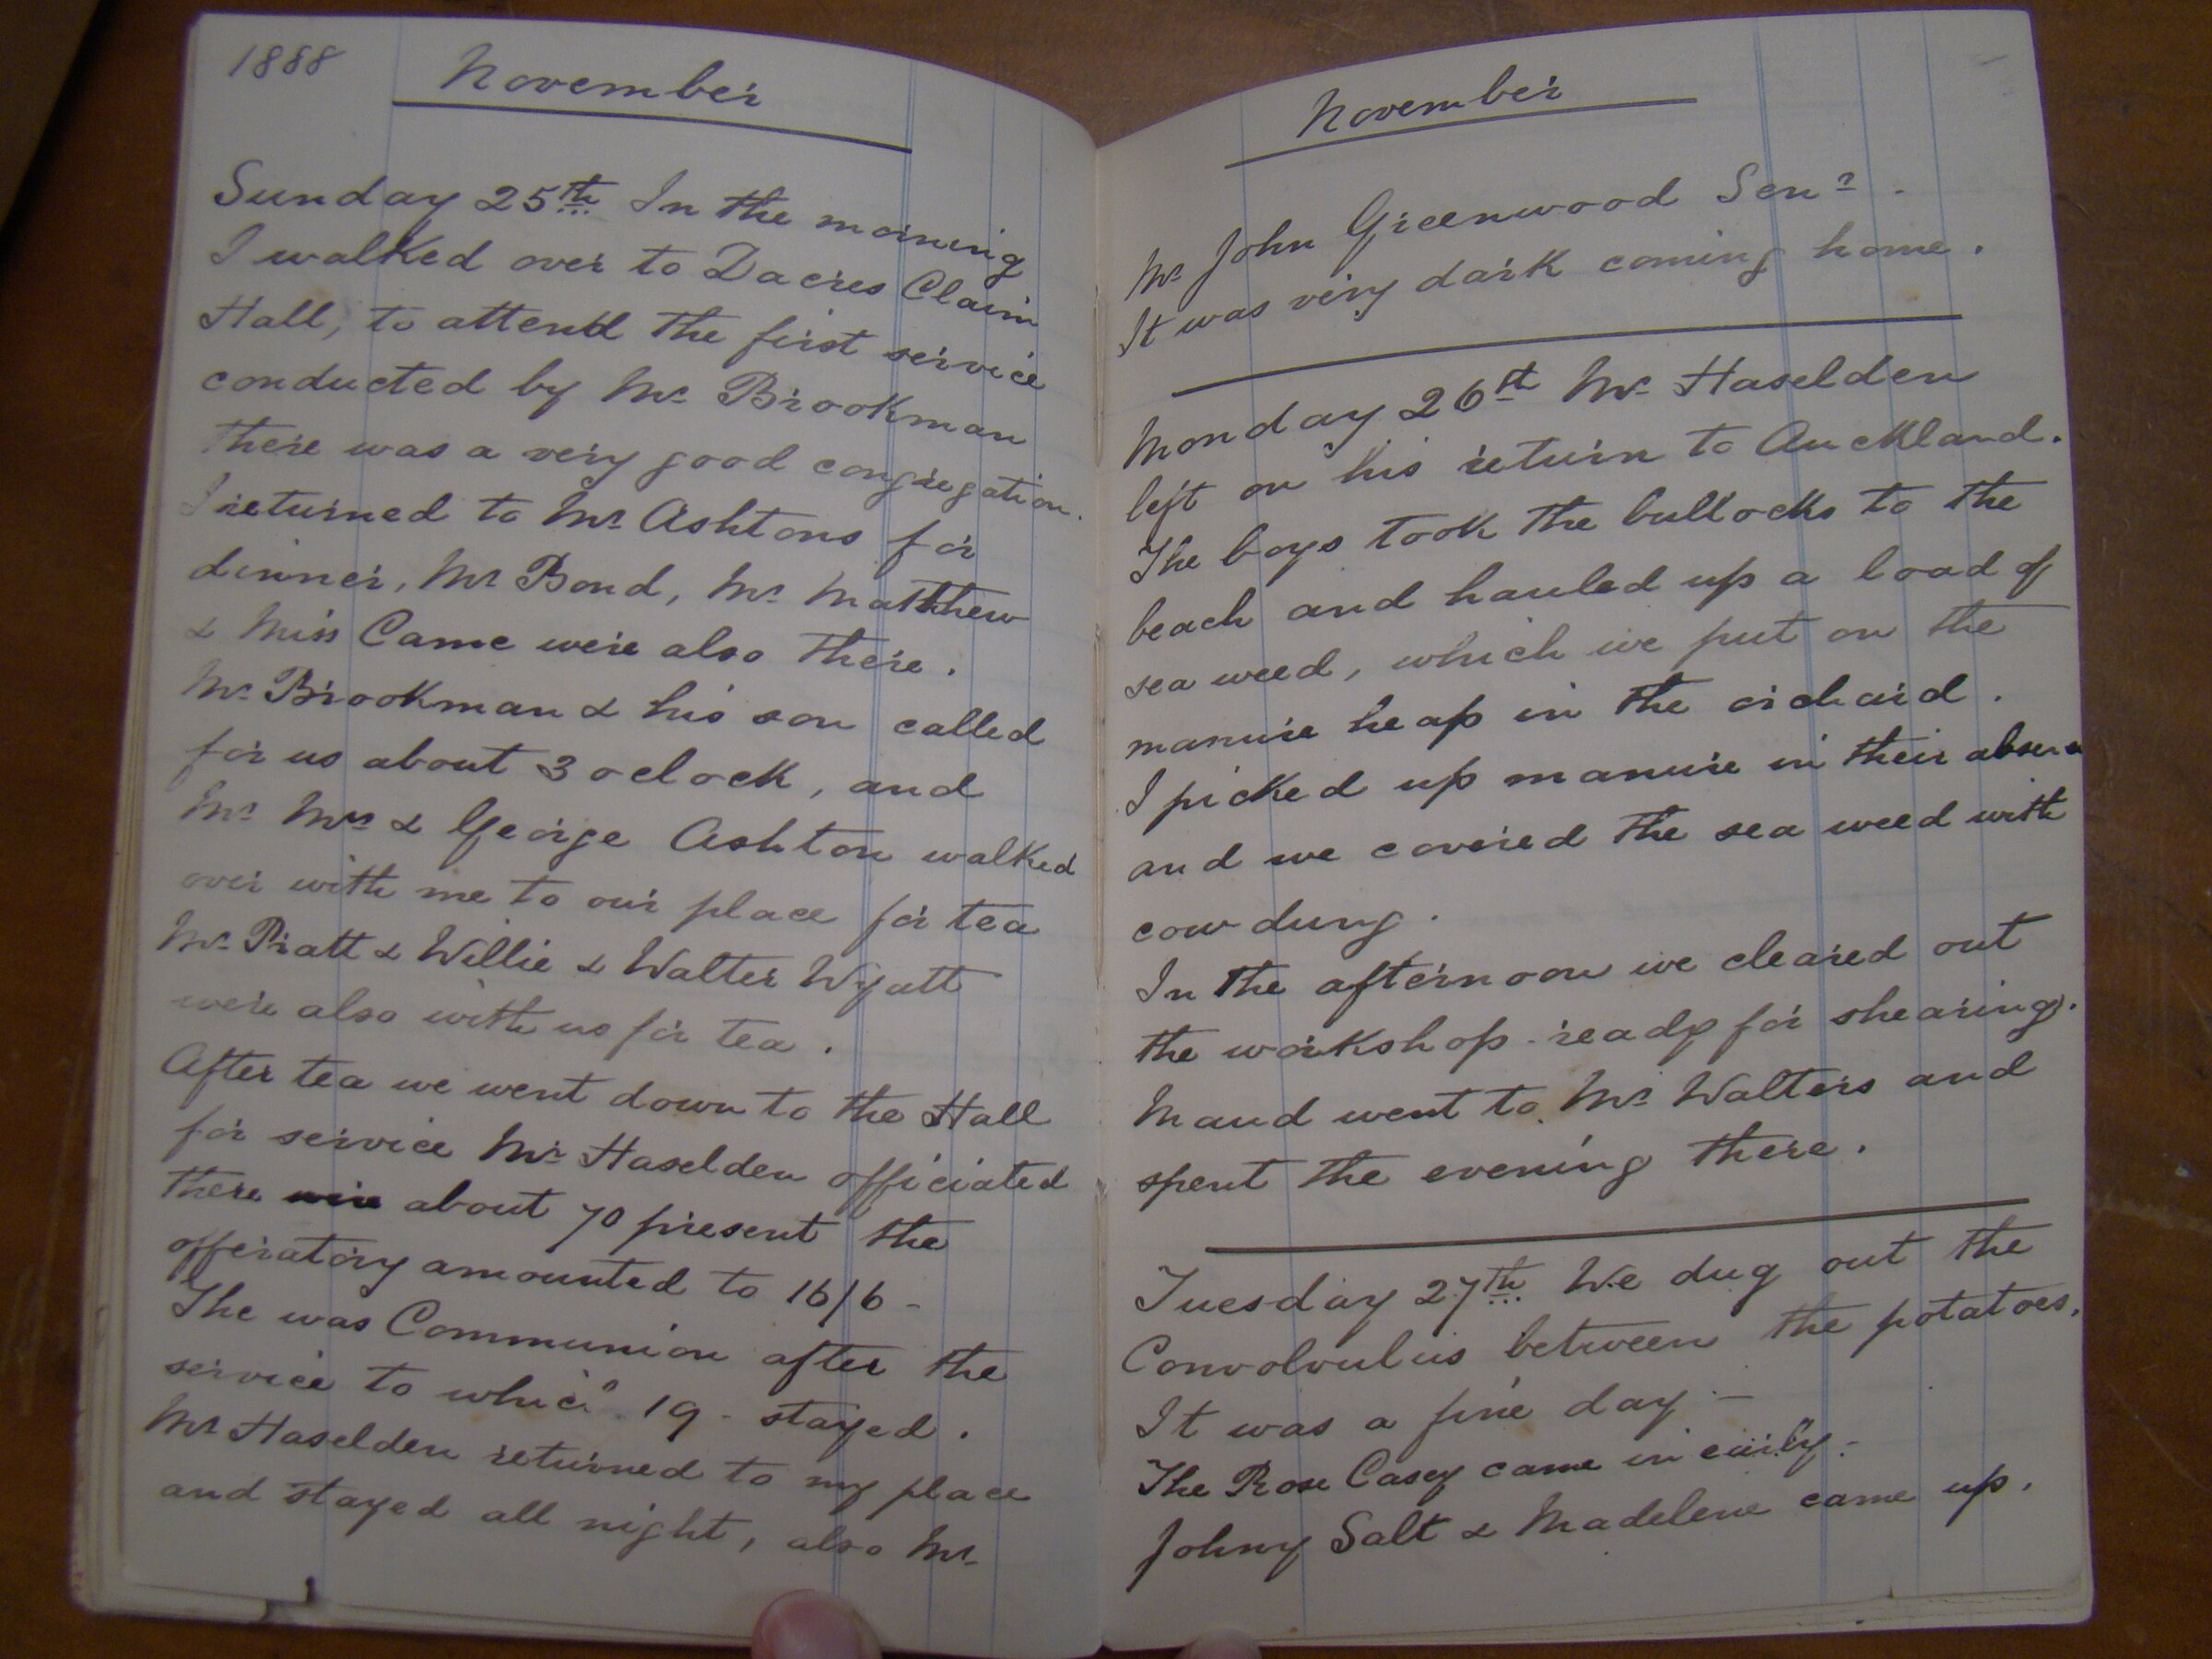 1888 November
Sunday 25th In the morning
I walked over to Dacres Claim
Hall, to attend the first service
conducted by Mr Brookman
there was a very good congregation.
I returned to Mr Ashtons for
dinner, Mr Bond, Mr Matthew
& Miss Came were also there.
Mr Brookman & his son called
for us about 3 oclock, and
Mr Mrs & George Ashton walked
over with me to our place for tea
Mr Pratt & Willie & Walter Wyatt
were also with us for tea.
After tea we went down to the Hall
for service Mr Haselden officiated
there were about 70 present the
offeratory amounted to 16/6 -
The was Communion after the
service to which 19 - stayed.
Mr Haselden returned to my place
and stayed all night, also Mr
November
Mr John Greenwood Senr.
It was very dark coming home.
Monday 26st Mr Haselden
left on his return to Auckland.
The boys took the bullocks to the
beach and hauled up a load of
sea weed, which we put on the
manure heap in the orchard.
I picked up manure in their absence
and we covered the sea weed with
cow dung.
In the afternoon we cleared out
the workshop - ready for shearing.
Maud went to Mr Walters and
spent the evening there.
Tuesday 27th We dug out the
Convolvulus between the potatoes.
It was a fine day -
The Rose Casey came in early -
Johny Salt & Madelene came up.